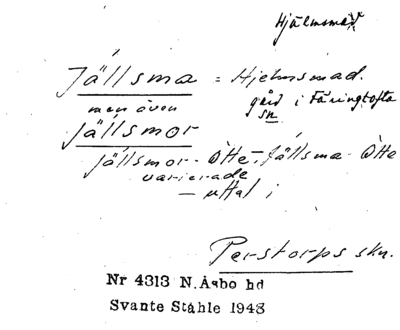 Hjälmsmad
Jällsma = Hjelmsmad.
men även gård i Färingtofta
sn
Jällsmor
Jällsmor-Òtte, Jällsma-Òtte
varierade
— uttal i
Perstorps skn.
Nr 4313 N. Åsbo hd
Svante Ståhle 1948